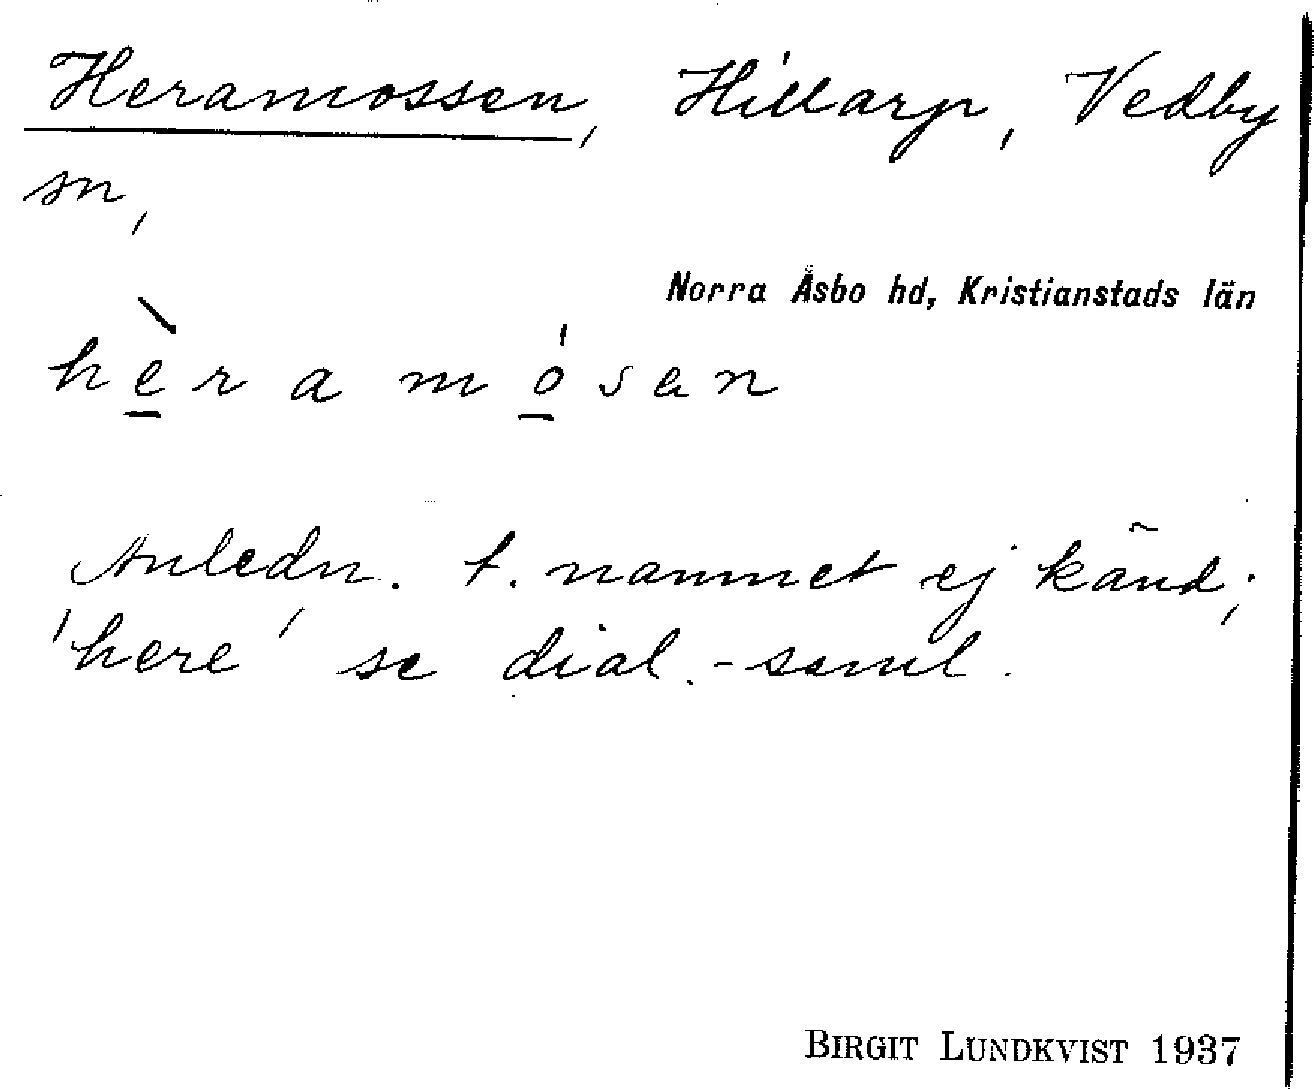 Heramossen, Hillarp, Vedby
sn,
Norra Åsbo hd, Kristianstads län
hèramósen
Anledn. t. namnet ej känd;
'here' se dial.-saml.
BIRGIT LUNDKVIST 1937